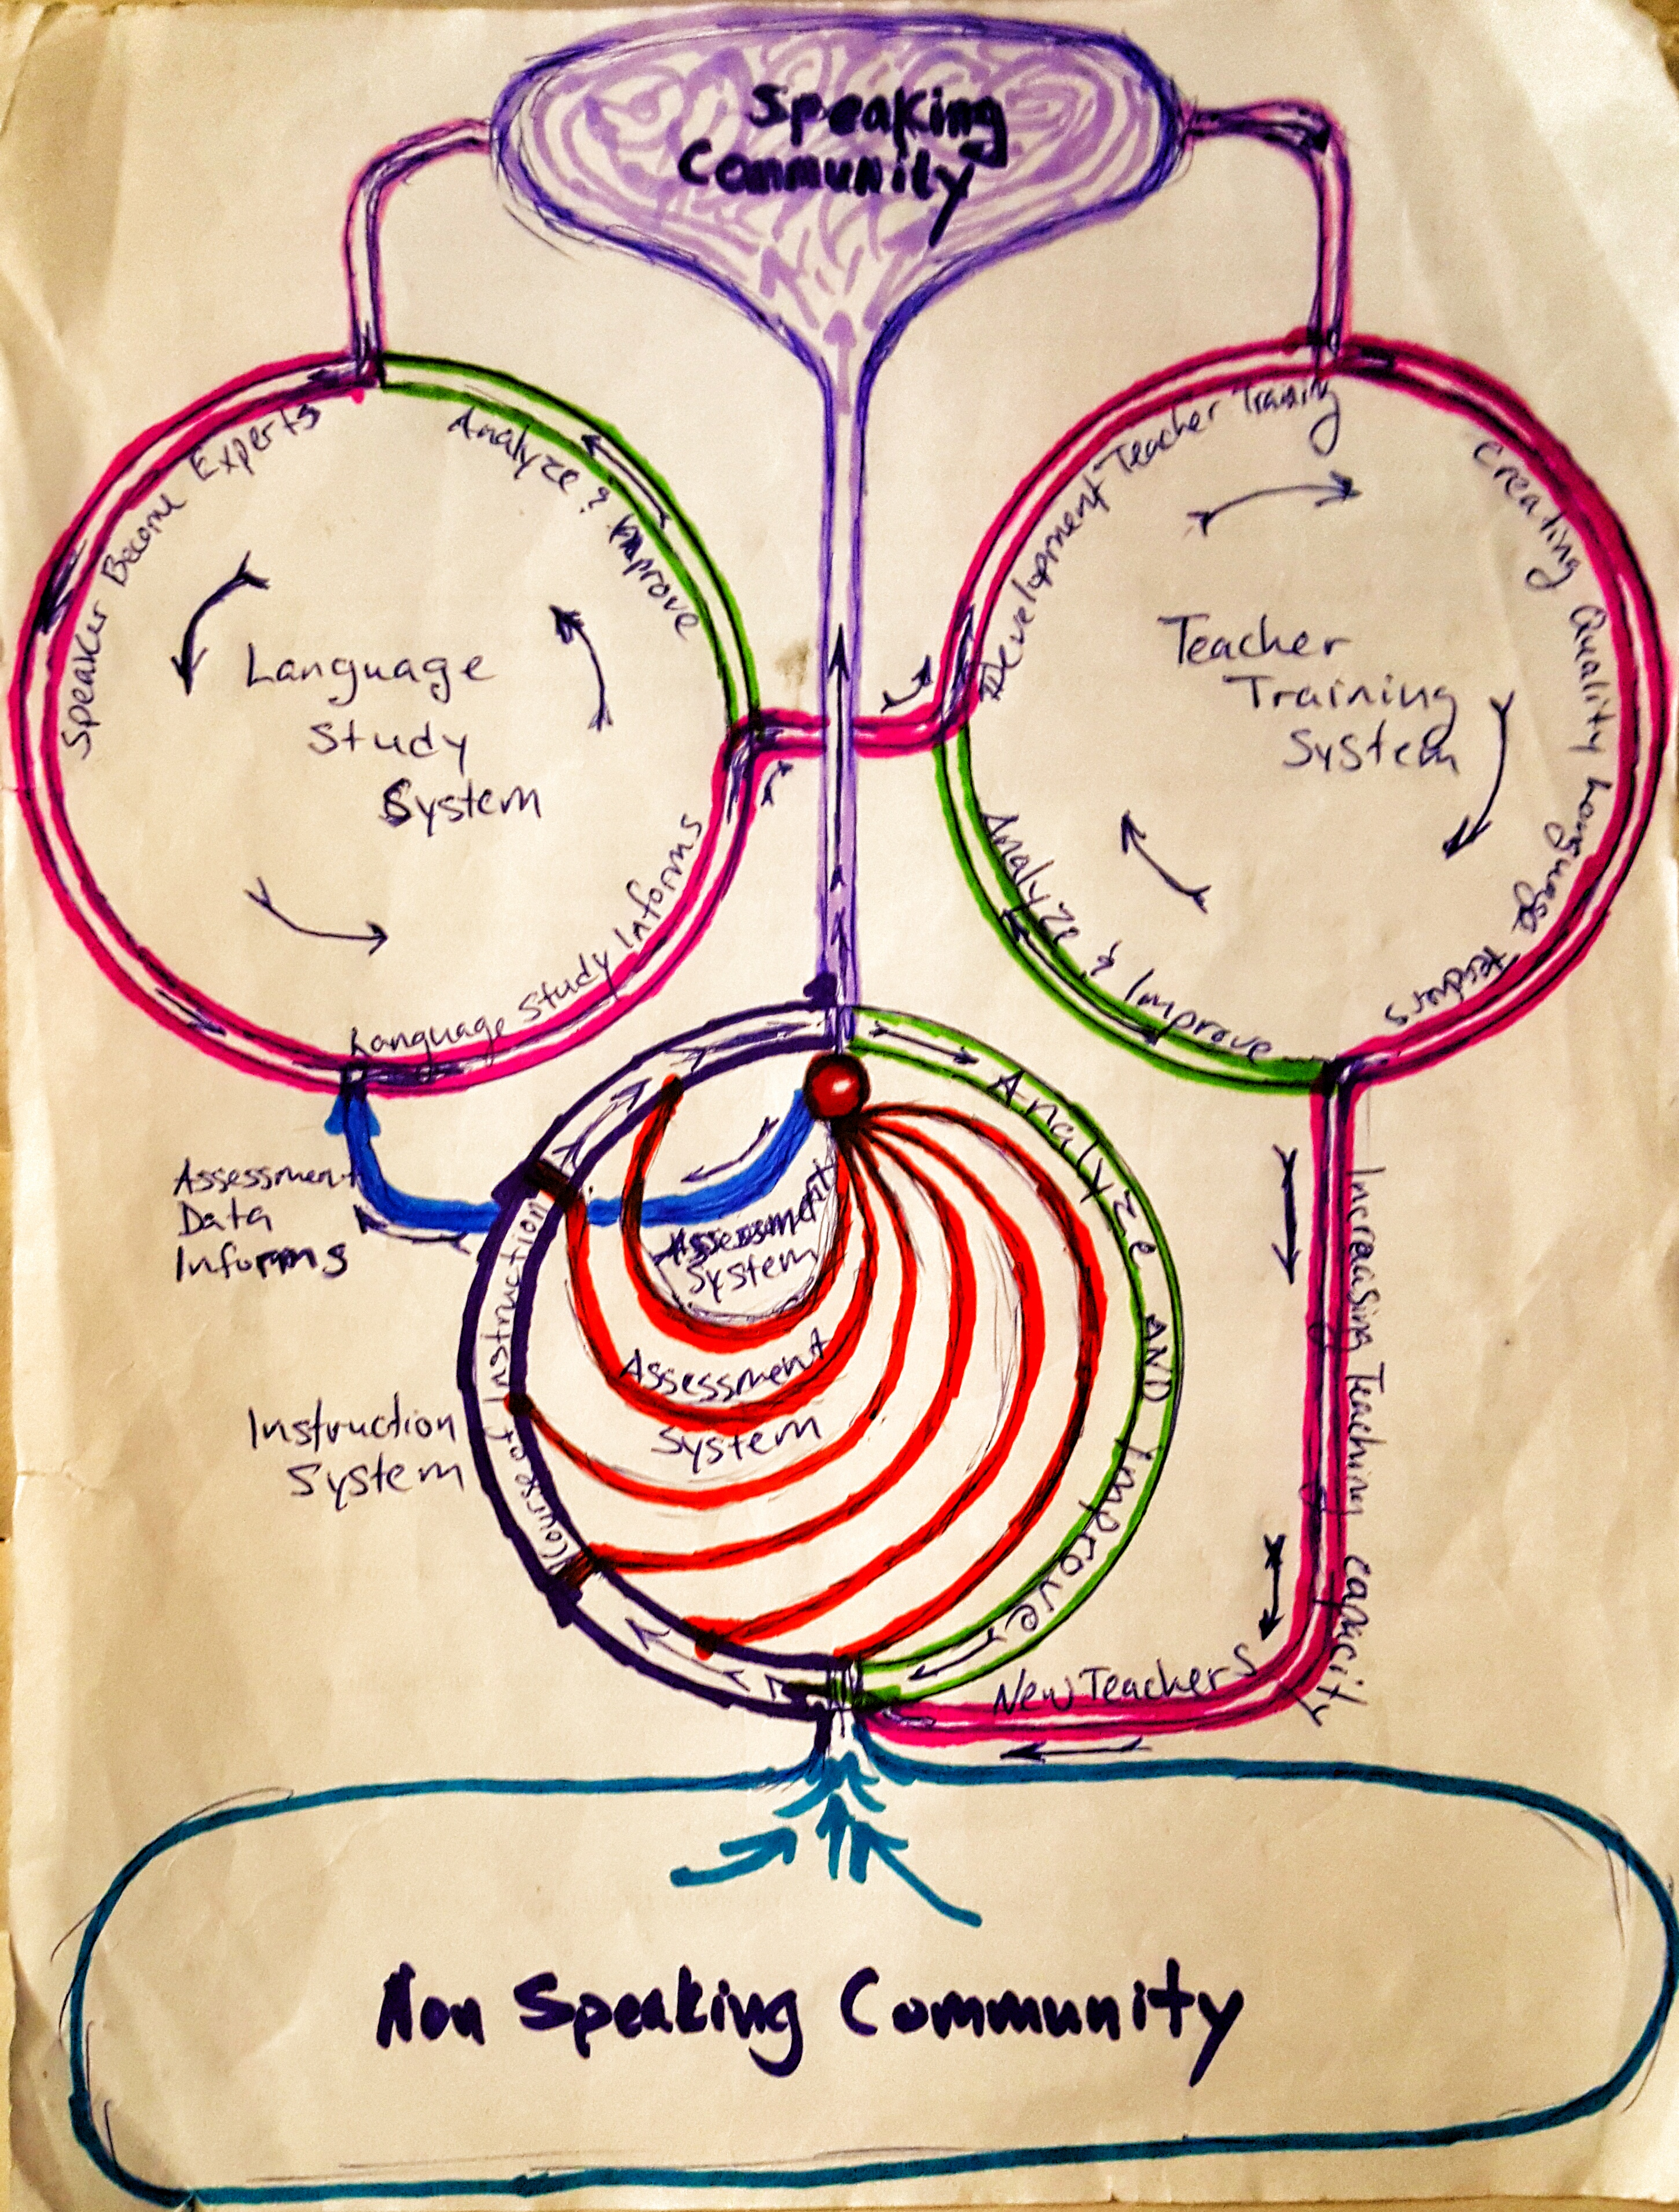 Speaking
Community
Speaker Become Experts
Analyze & Improve
Language
Study
System
Language Study Informs
Development Teacher Training
Creating Quality Language Teachers
Teacher
Training
System
Analyze & Improve
Assessment
Data
Informs
Assessment
System
Assessment
System
Instruction
System
Course of Instruction
Analyze AND Improve
Increasing Teaching capicity
New Teachers
Non Speaking Community